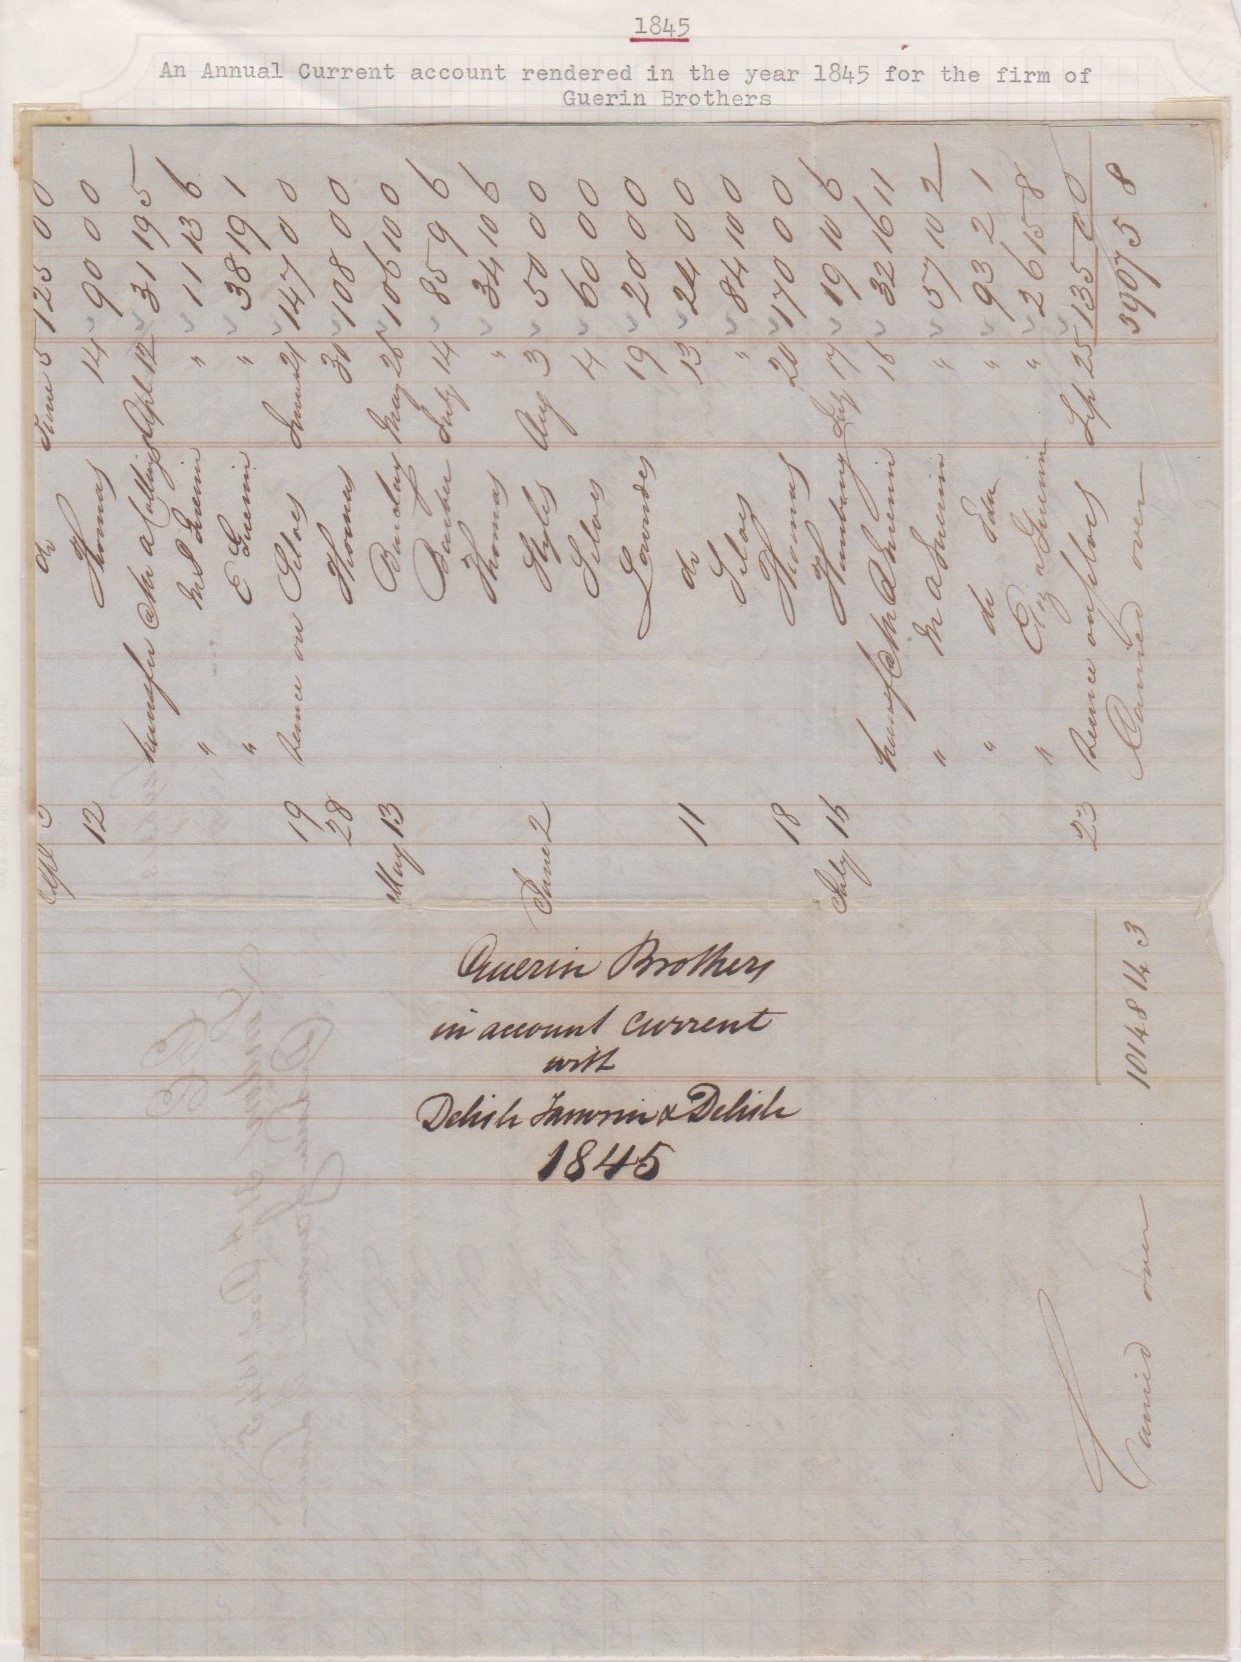 1845
An Annual Current account rendered in the year 1845 for the firm of
Guerin Brothers
Apl 3 do June 5 125 0 0
12 Thomas 14 90 0 0
transfer @ M A Collings Apl 12 31 19 5
" M S Guerin " 11 13 6
" E Guerin " 38 19 1
19 Remce on Silves June 21 147 0 0
28 Thomas 30 108 0 0
May 13 Barclay May 26 106 10 0
Barker July 14 85 9 6
Thomas " 34 10 6
June 2 Styles Aug 3 50 0 0
Silves 4 60 0 0
Lowndes 19 20 0 0
11 do 13 24 0 0
Silves " 84 10 0
18 Thomas 20 170 0 0
July 16 July 17 19 10 6
transf @ M Guerin 16 32 16 11
" M A Guerin " 57 10 2
" do " 93 2 1
" Guerin " 26 15 8
23 Remce on Silves Sep 25 135 0 0
Carried over 3907 5 8
Guerin Brothers
in account current
with
Delisle Janvrin & Delisle
1845
Carried over 10148 14 3